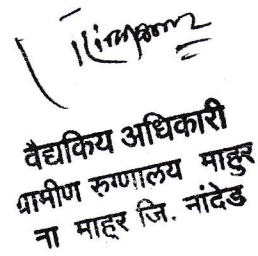 वैद्यकिय अधिकारी
ग्रामीण रुग्णालय माहुर
ना माहूर जि. नांदेड